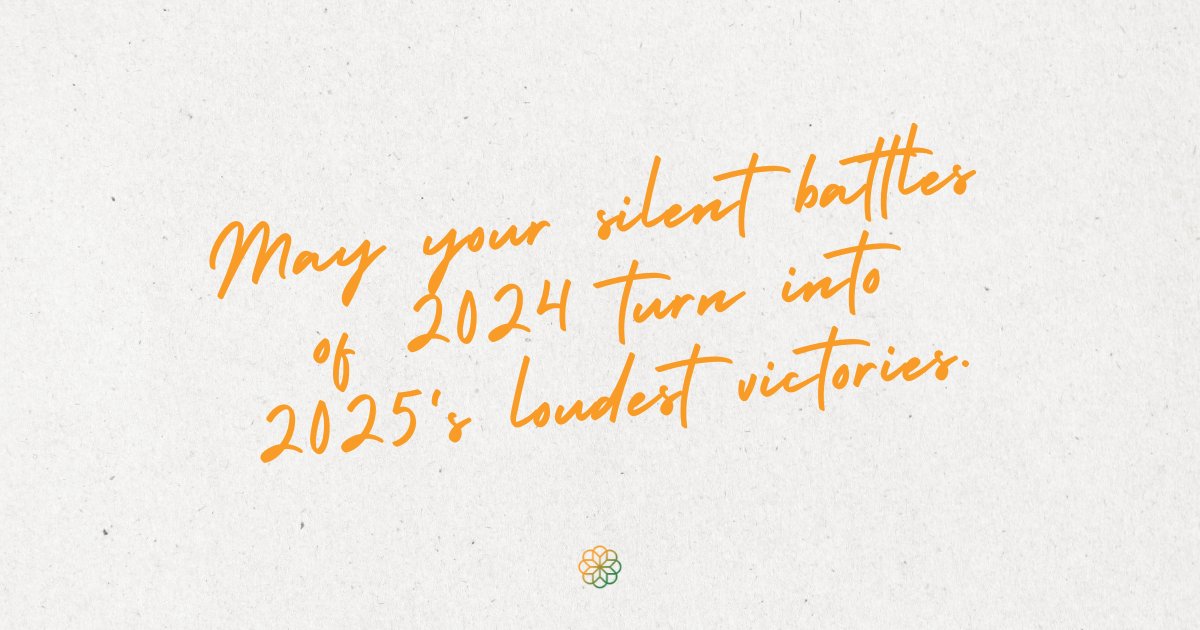 May your silent battles
of 2024 turn into
2025's loudest victories.